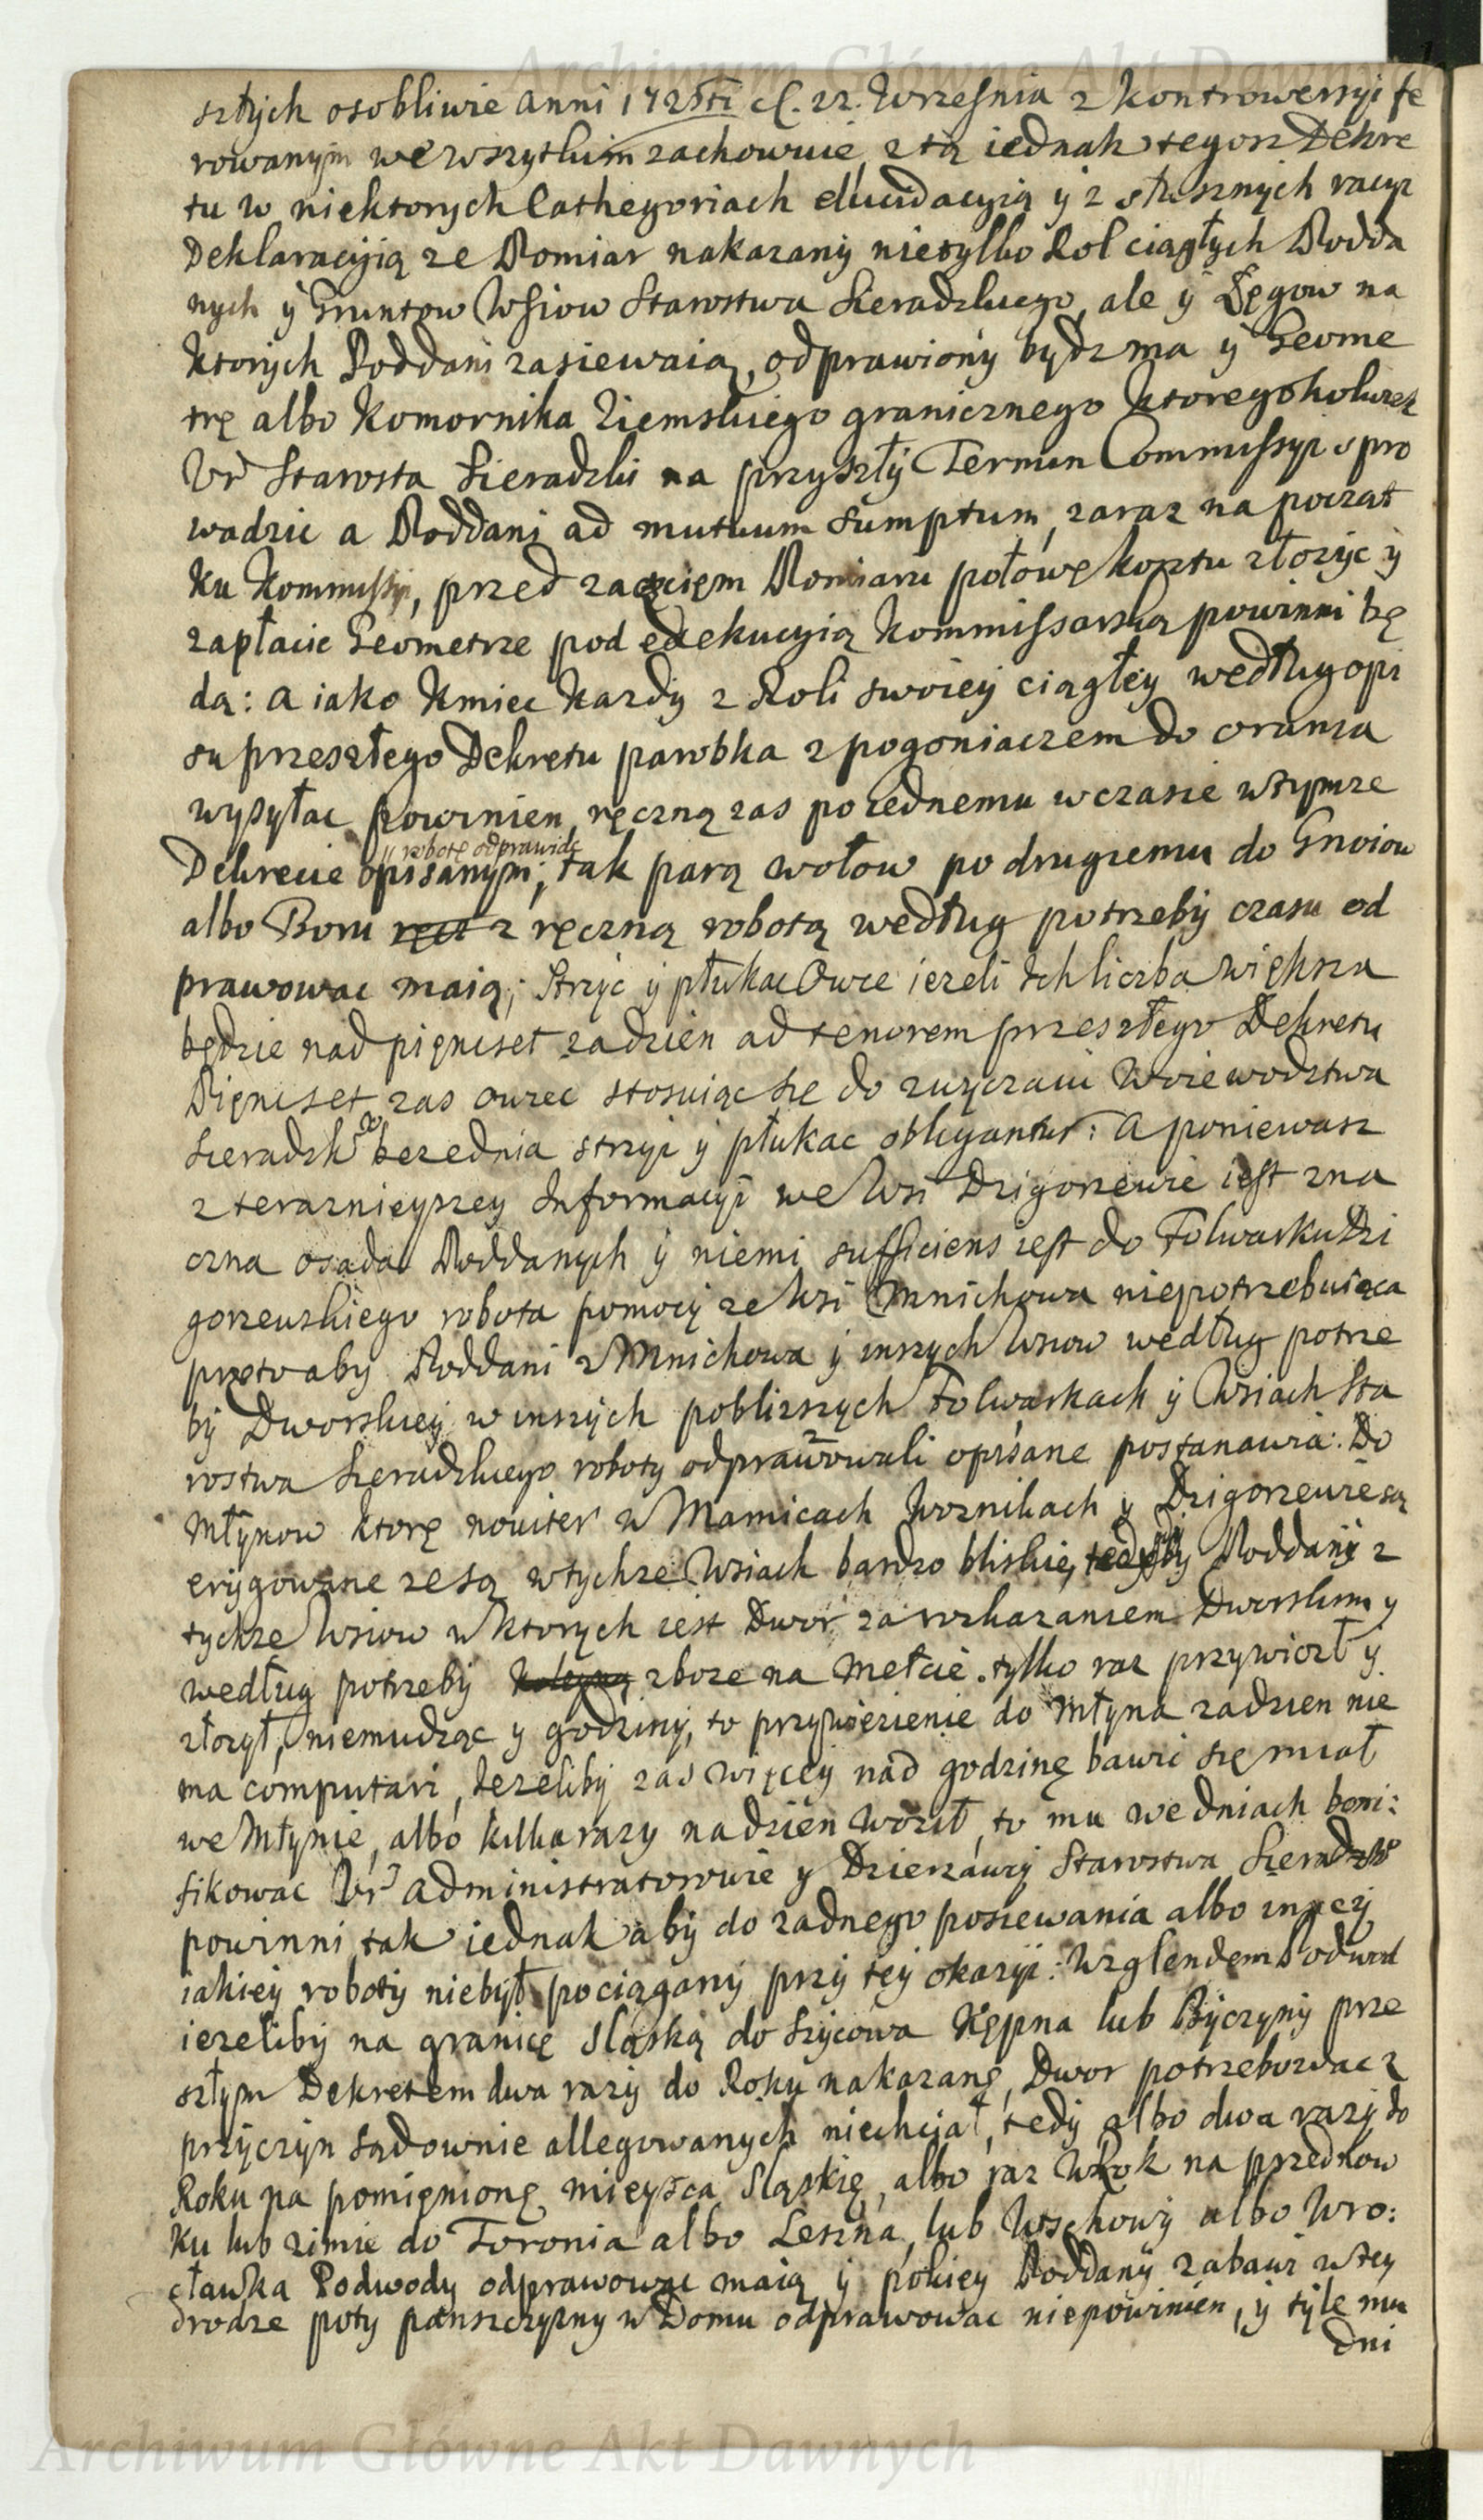 Archiwum Główne Akt Dawnych
szłych osobliwie Anni 1725ti d. 22. Września z kontrowersyi fe
rowanym we wszytkim zachowuie, z tą iednak tegosz Dekre
tu w niektorych Cathegoriach elucidacyią y z słusznych racyi
Deklaracyią ze Pomiar nakazany nietylko Rol ciągłych Podda
nych y Gruntow Wsiow Starostwa Sieradzkiego, ale y Łęgow na
ktorych Poddani zasiewaią, odprawiony bydz ma y Geome
trę albo Komornika Ziemskiego granicznego ktoregokolwiek
Ur Starosta Sieradzki na przyszły Termin Commissyi spro
wadzic a Poddani ad mutuum sumptum, zaraz na począt
ku Kommissyi, przed zaczęciem Pomiaru połowę kosztu złozyc y
zapłacic Geometrze pod exekucyią Kommissarską powinni bę
dą: a iako Kmiec kazdy z Roli swoiey ciągłey według opi
su przeszłego Dekretu parobka z pogoniaczem do orania
wysyłac powinien, ręczną zas po iednemu w czasie w tymze
// robotę odprawic
Dekrecie opisanym; tak parą wołow po drugiemu do Gnoiow
albo Boru z ręczną robotą według potrzeby czasu od
prawowac maią; Strzyc y płukac Owce iezeli Ich liczba większa
będzie nad pięncset za dzien ad tenorem przeszłego Dekretu
Pięncset zas owiec stosuiąc się do zwyczaiu Woiewodztwa
Sieradzkgo bezednia strzyc y płukac obligantur: A poniewasz
z teraznieyszey Informacyi we Wsi Dzigorzewie iest zna
czna osada Poddanych y niemi sufficiens iest do Folwarku Dzi
gorzewskiego robota pomocy ze Wsi Mnichowa niepotrzebuiąca
przeto aby Poddani z Mnichowa y inszych Wsiow według potrze
by Dworskiey w inszych poblizszych Folwarkach y Wsiach Sta
rostwa Sieradzkiego roboty odprawowali opisane postanawia: Do
Młynow ktorę noviter w Mamicach Woznikach y Dzigorzewie są
erygowane ze są w tychze Wsiach bardzo bliskie, Poddany z
tychze Wsiow w ktorych iest Dwor za rozkazaniem Dworskim y
według potrzeby zboze na Mełcie tylko raz przywiozł y
złozył, niemudząc y godziny, to przywiezienie do Młyna zadzien nie
ma computari, Iezeliby zas więcey nad godzinę bawic się miał
we Młynie, albo kilka razy na dzien woził, to mu we dniach boni:
fikowac Ur Administratorowie y Dzierzawcy Starostwa Sieradzkgo
powinni, tak iednak aby do zadnego posiewania albo inszey
iakiey roboty niebył pociągany przy tey okazyi: Wzglendem Podwod
iezeliby na granicę Sląską do Sycowa Kępna lub Byczyny prze
szłym Dekretem dwa razy do Roku nakazanę, Dwor potrzebowac z
przyczyn sądownie allegowanych niechciał, tedy albo dwa razy do
Roku na pomięnionę mieysca Sląskię, albo raz w Rok na przednow
ku lub zimie do Toronia albo Leszna, lub Wschowy albo Wro:
cławka Podwody odprawowac maią y pokiey Poddany zabawi w tey
drodze poty panszczyzny w Domu odprawowac niepowinien, y tyle mu
dni
Archiwum Główne Akt Dawnych